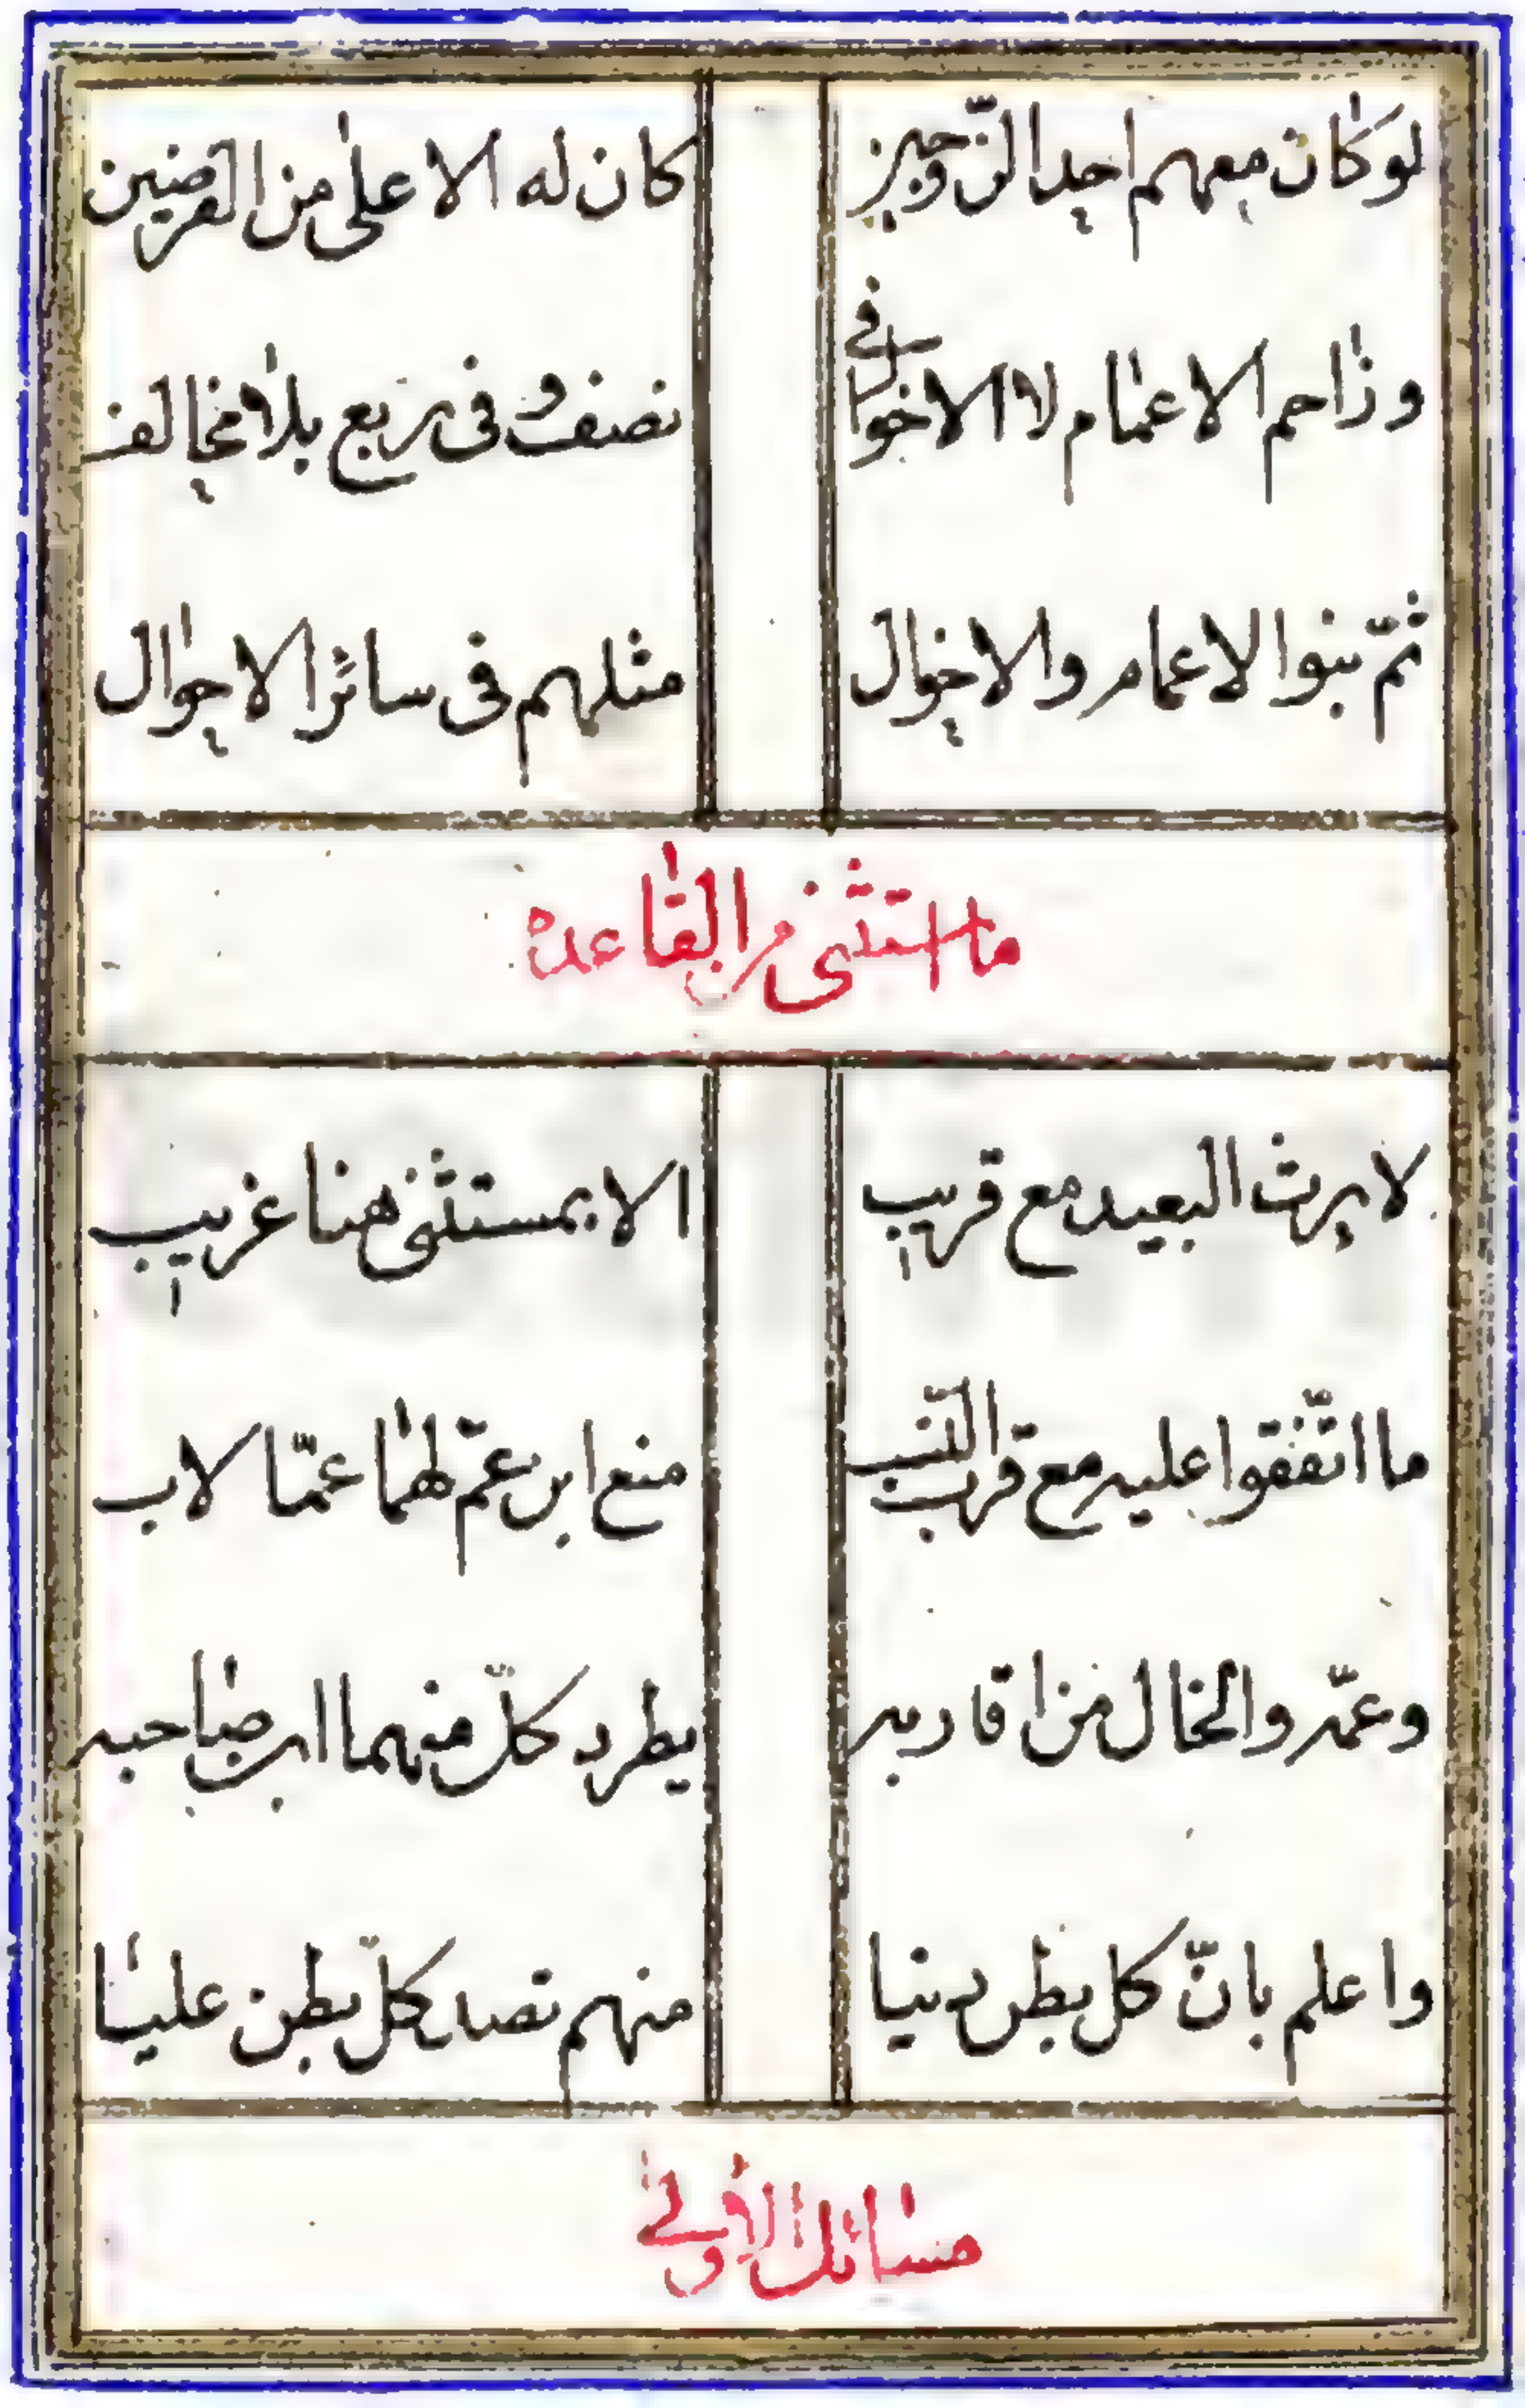 لو كان معهم احد الزّوجين كان له الاعلى من الفرضين
وزاحم الاعمام لا الاخوال في نصف وفى ربع بلا مخالف
ثمّ بنوا الاعمام والاخوال مثلهم فى سائر الاحوال
ما استثنى من القاعده
لا يرث البعيد مع قريب الا بمستثنى هنا غريب
ما اتّفقوا عليه مع قرب النّسب منع ابن عمّ لهما عمّا لاب
وعمّه والخال من اقاربه يطرد كلّ منهما ابن صاحبه
واعلم بانّ كل بطن دنيا منهم تصد كلّ بطن عليا
مسائل الأولى